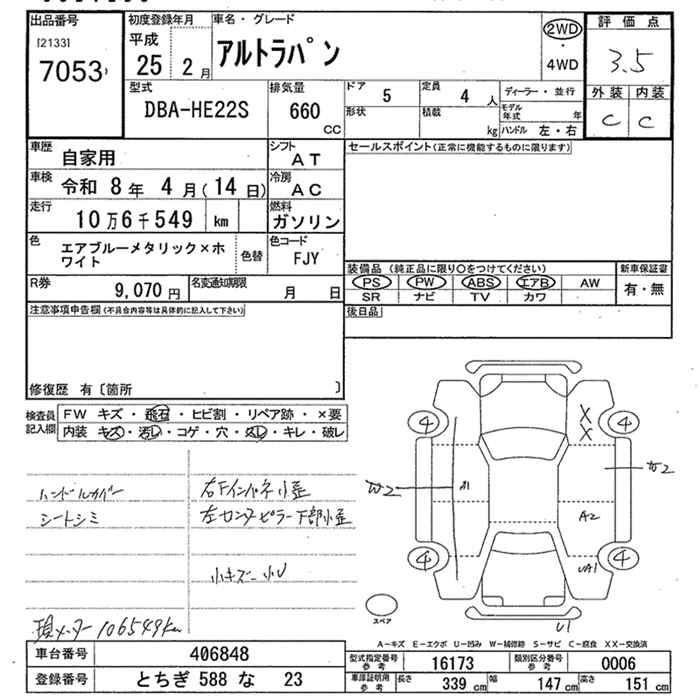 出品番号
[2133]
7053
初度登録年月
平成
25 2月
車名・グレード
アルトラパン
2WD
・
4WD
評価点
3.5
外装 内装
C C
型式
DBA-HE22S
排気量
660
CC
ドア
5
形状
定員
4人
積載
kg
ディーラー・並行
モデル年式 年
ハンドル 左・右
車歴
自家用
シフト
AT
車検
令和 8年 4月(14日)
冷房
AC
走行
10万6千549 km
燃料
ガソリン
色
エアブルーメタリック×ホワイト
色替
色コード
FJY
R券
9,070円
名変通知期限
月 日
セールスポイント(正常に機能するものに限ります)
装備品(純正品に限り○をつけてください)
PS PW ABS エアB AW
SR ナビ TV カワ
新車保証書
有・無
後日品
注意事項申告欄(不具合内容等は具体的に記入して下さい)
修復歴 有〔箇所 〕
検査員記入欄
FW キズ・飛石・ヒビ割・リペア跡・×要
内装 キズ・汚れ・コゲ・穴・スレ・キレ・破レ
ハンドルカバー
シートシミ
右Fインパネ小歪
左センターピラー下部小歪
小キズ 小U
現メーター106549km
4 4
X
X
W2
A1
W2
A2
4 4
UA1
U1
スペア
A-キズ E-エクボ U-凹み W-補修跡 S-サビ C-腐食 XX-交換済
車台番号
406848
登録番号
とちぎ 588 な 23
型式指定番号
参考
16173
類別区分番号
参考
0006
車庫証明用
参考
長さ 339 cm
幅 147 cm
高さ 151 cm